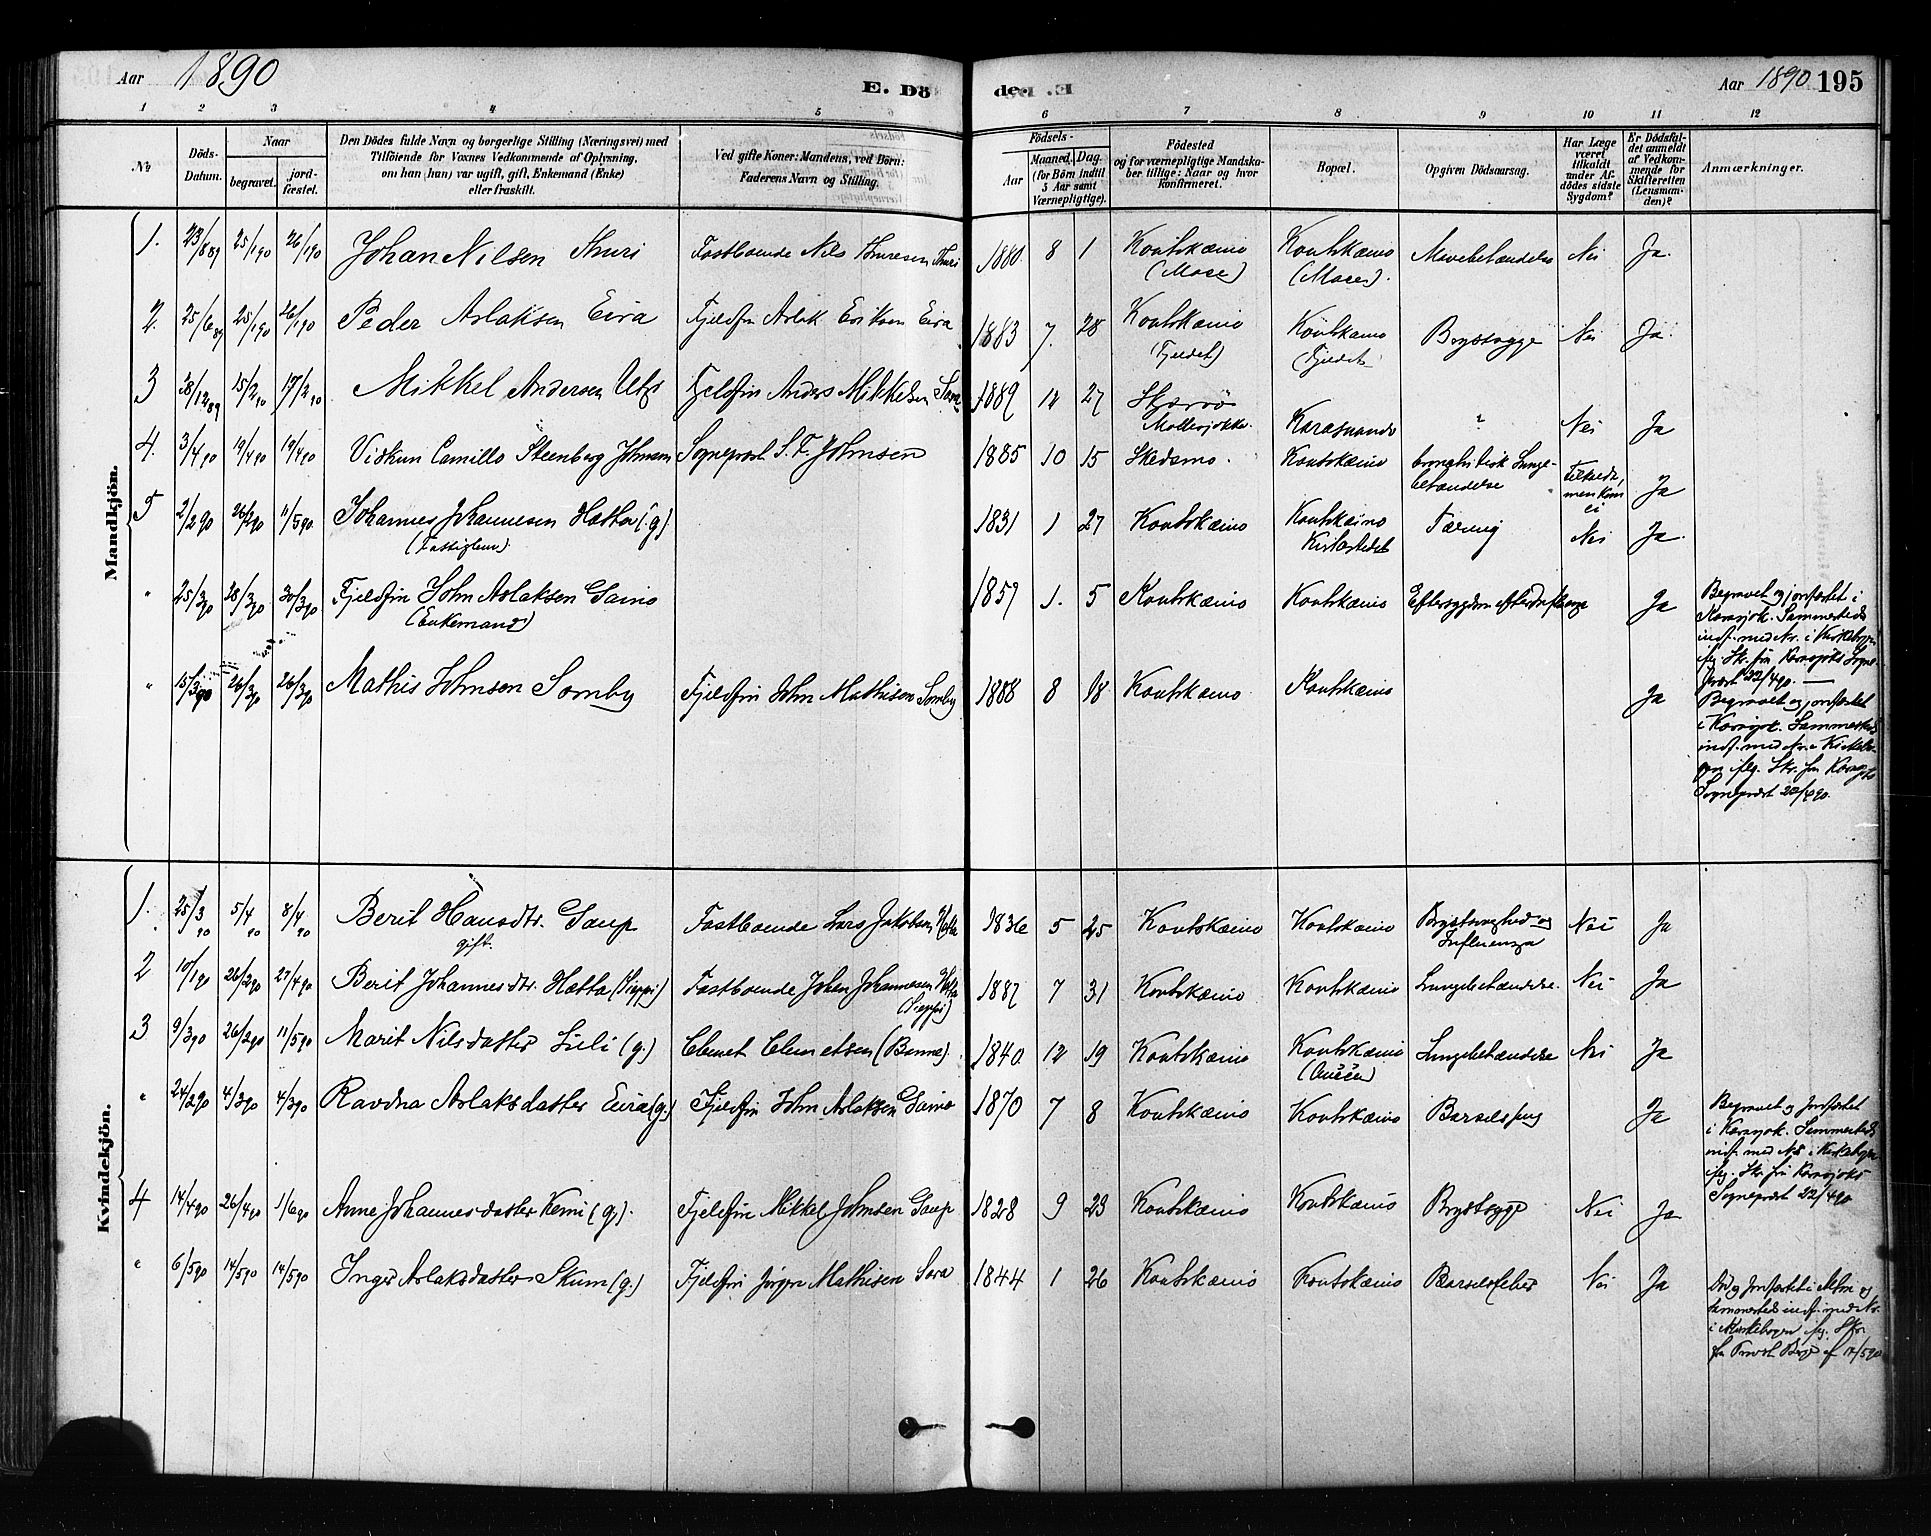 Aar 1890 E. Dö
den. E. Aar 1890 195
1 2 3 4 5 6 7 8 9 10 11 12
No. Döds-Datum. Naar begravet. jordfæstet. Den Dödes fulde Navn og borgerlige Stilling (Næringsvei) med Tilföiende for Voxnes Vedkommende af Oplysning, om han (hun) var ugift, gift, Enkemand (Enke) eller fraskilt. Ved gifte Koner: Mandens, ved Börn: Faderens Navn og Stilling. Födsels- Aar Maaned. Dag. (for Börn indtil 5 Aar samt Værnepligtige). Födested og for værnepligtige Mandskaber tillige: Naar og hvor Konfirmeret. Bopæl. Opgiven Dödsaarsag. Har Læge været tilkaldt under Afdödes sidste Sygdom? Er Dödsfaldet anmeldt af Vedkommende for Skifteretten (Lensmanden)? Anmærkninger.
Mandkjön.
1. 23/8 89 25/1 90 26/1 90 Johan Nilsen Thuri Fastboende Nils Thuresen Thuri 1880 8 1 Koutokæino (Mase) Koutokæino (Mase). Mavebetændelse Nei Ja.
2. 25/6 89 25/1 90 26/1 90 Peder Aslaksen Eira Fjeldfin Aslak Eriksen Eira 1883 7. 28 Koutokæino (Fjeldet) Koutokæino (Fjeldet) Brystsyge Nei Ja.
3 28/12 89 15/2 90 17/2 90 Mikkel Andersen Utsi Fjeldfin Anders Mikkelsen 1889 12 27 Karasuando " Nei Ja
4. 3/4 90 19/4 90 19/4 90 Vidkun Camillo Steenberg Johnsen Sogneprest S. F. Johnsen 1885 10 15 Skedsmo. Koutokæino bronchitisk Lungebetændelse Tilkaldt, men kom ei Ja
5 2/2 90 26/2 90 11/5 90 Johannes Johannesen Hætta (g) (Fattiglem) 1831 1 27 Koutokæino Koutokæino Kirkestedet Tæring Nei Ja.
" 25/3 90 28/3 90 30/3 90 Fjeldfin John Aslaksen Gaino (Enkemand) 1857 1. 5 Koutokæino Koutokæino Ja Begravet og jordfæstet i Karasjok. Sammesteds indf. med Nr. i Kirkebogen ifg. Skr. fra Karasjoks Sogneprest 22/4 90.
" 15/3 90 26/3 90 26/3 90 Mathis Johnsen Somby Fjeldfin John Mathisen Somby 1888 8 18 Koutokæino Koutokæino Ja Begravet og jordfæstet i Karasjok. Sammesteds indf. med Nr. i Kirkebogen ifg. Skr. fra Karasjoks Sogneprest 22/4 90.
Kvindekjön.
1. 25/3 90 5/4 90 8/4 90 Berit Hansdtr. Gaup gift. Fastboende Lars Jakobsen Hætta 1836 5 25 Koutokæino Koutokæino Brystsyghed og Influenza Nei Ja
2 10/1 90 26/2 90 27/4 90 Berit Johannesdtr. Hætta (Sieppi) Fastboende Johan Johannesen Hætta (Sieppi) 1887 7 31 Koutokæino Koutokæino Lungebetændelse. Nei Ja
3 9/3 90 26/3 90 11/5 90 Marit Nilsdatter Siili (g.) Clemet Clemetsen (Banne). 1840 12 19 Koutokæino Koutokæino Lungebetændelse Nei Ja
" 24/2 90 4/3 90 4/3 90 Ravdna Aslaksdatter Eira (g.) Fjeldfin John Aslaksen Gaino 1870 7 8 Koutokæino Koutokæino Barselsseng Ja Begravet og jordfæstet i Karasjok. Sammesteds indf. med No i Kirkebogen ifg. Skr. fra Karasjoks Sogneprest 22/4 90
4 14/4 90 26/4 90 1/6 90 Anne Johannesdatter Kemi (g). Fjeldfin Mikkel Johnsen Gaup 1828 9 23 Koutokæino Koutokæino Brystsyge Nei Ja
" 6/5 90 14/5 90 14/5 90 Inger Aslaksdatter Skum (g.) Fjeldfin Jörgen Mathisen Sara 1844 1 26 Koutokæino Koutokæino Barselfeber Nei Ja Död og jordfæstet i Alten og sammesteds indf. med Nr. i Kirkebogen ifg. Skr. fra Provst af 14/5 90